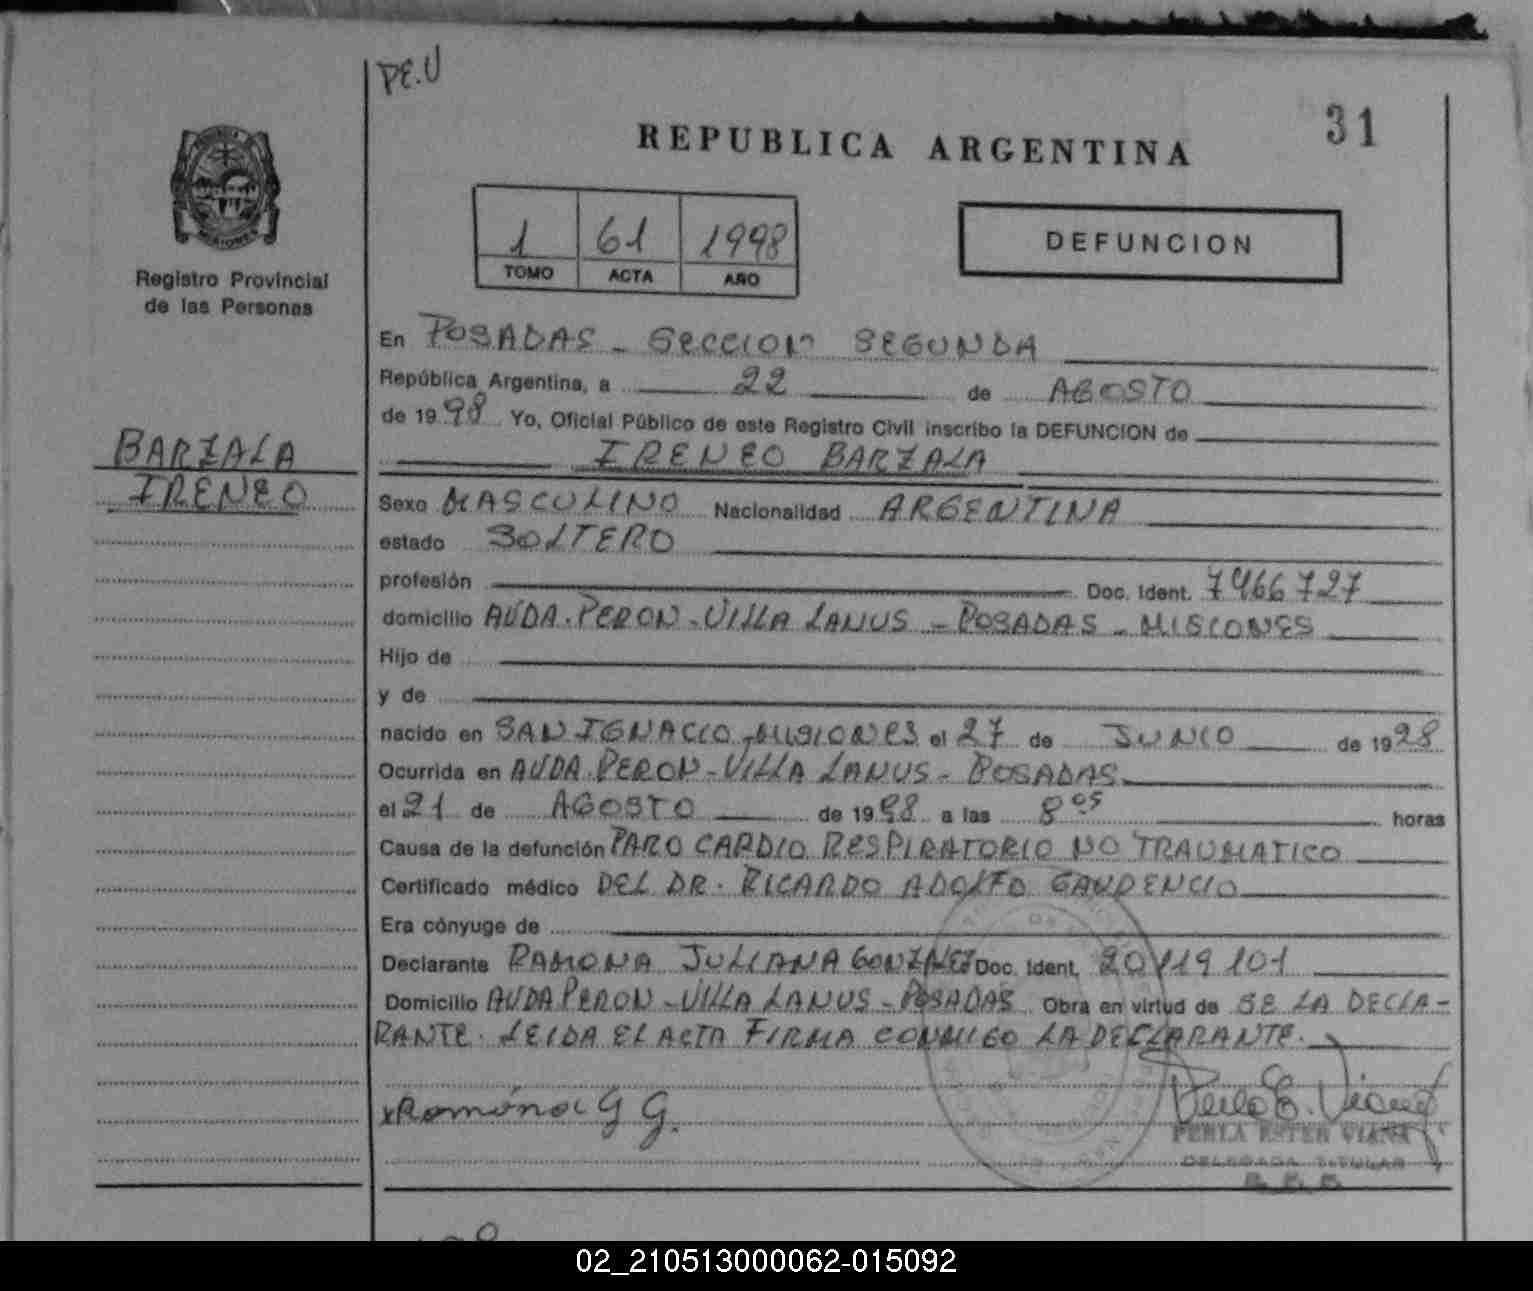 PE.U
31
REPUBLICA ARGENTINA
1 61 1998
TOMO ACTA AÑO
DEFUNCION
Registro Provincial
de las Personas
BARZALA
IRENEO
En POSADAS - SECCION SEGUNDA
República Argentina, a 22 de AGOSTO
de 1998 Yo, Oficial Público de este Registro Civil inscribo la DEFUNCION de
IRENEO BARZALA
Sexo MASCULINO Nacionalidad ARGENTINA
estado SOLTERO
profesión Doc. Ident. 7466727
domicilio AVDA. PERON - VILLA LANUS - POSADAS - MISIONES
Hijo de
y de
nacido en SAN IGNACIO - MISIONES el 27 de JUNIO de 1928
Ocurrida en AVDA. PERON - VILLA LANUS - POSADAS
el 21 de AGOSTO de 1998 a las 8 05 horas
Causa de la defunción PARO CARDIO RESPIRATORIO NO TRAUMATICO
Certificado médico DEL DR. RICARDO ADOLFO GAUDENCIO
Era cónyuge de
Declarante RAMONA JULIANA GONZALEZ Doc. Ident. 20119101
Domicilio AVDA PERON - VILLA LANUS - POSADAS Obra en virtud de SE LA DECLA-
RANTE. LEIDA EL ACTA FIRMA CONMIGO LA DECLARANTE.
x Ramona G G.
PERLA ESTER VIANA
DELEGADA TITULAR
02_210513000062-015092